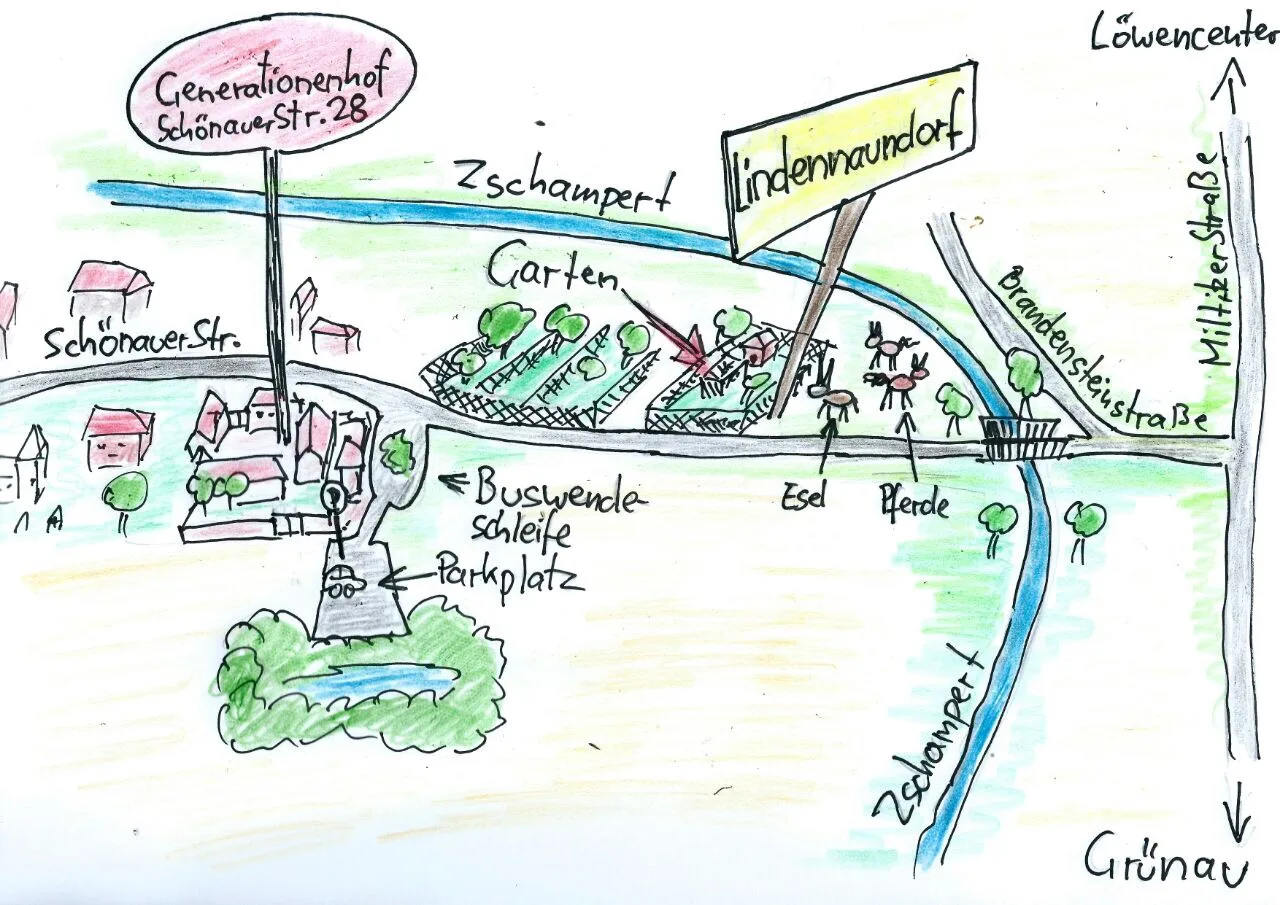 Löwencenter
Generationenhof
Schönauer Str. 28
Lindennaundorf
Zschampert
Garten
Brandensteinstraße
Miltitzer Straße
Schönauer Str.
Esel
Pferde
Buswende
schleife
Parkplatz
Zschampert
Grünau